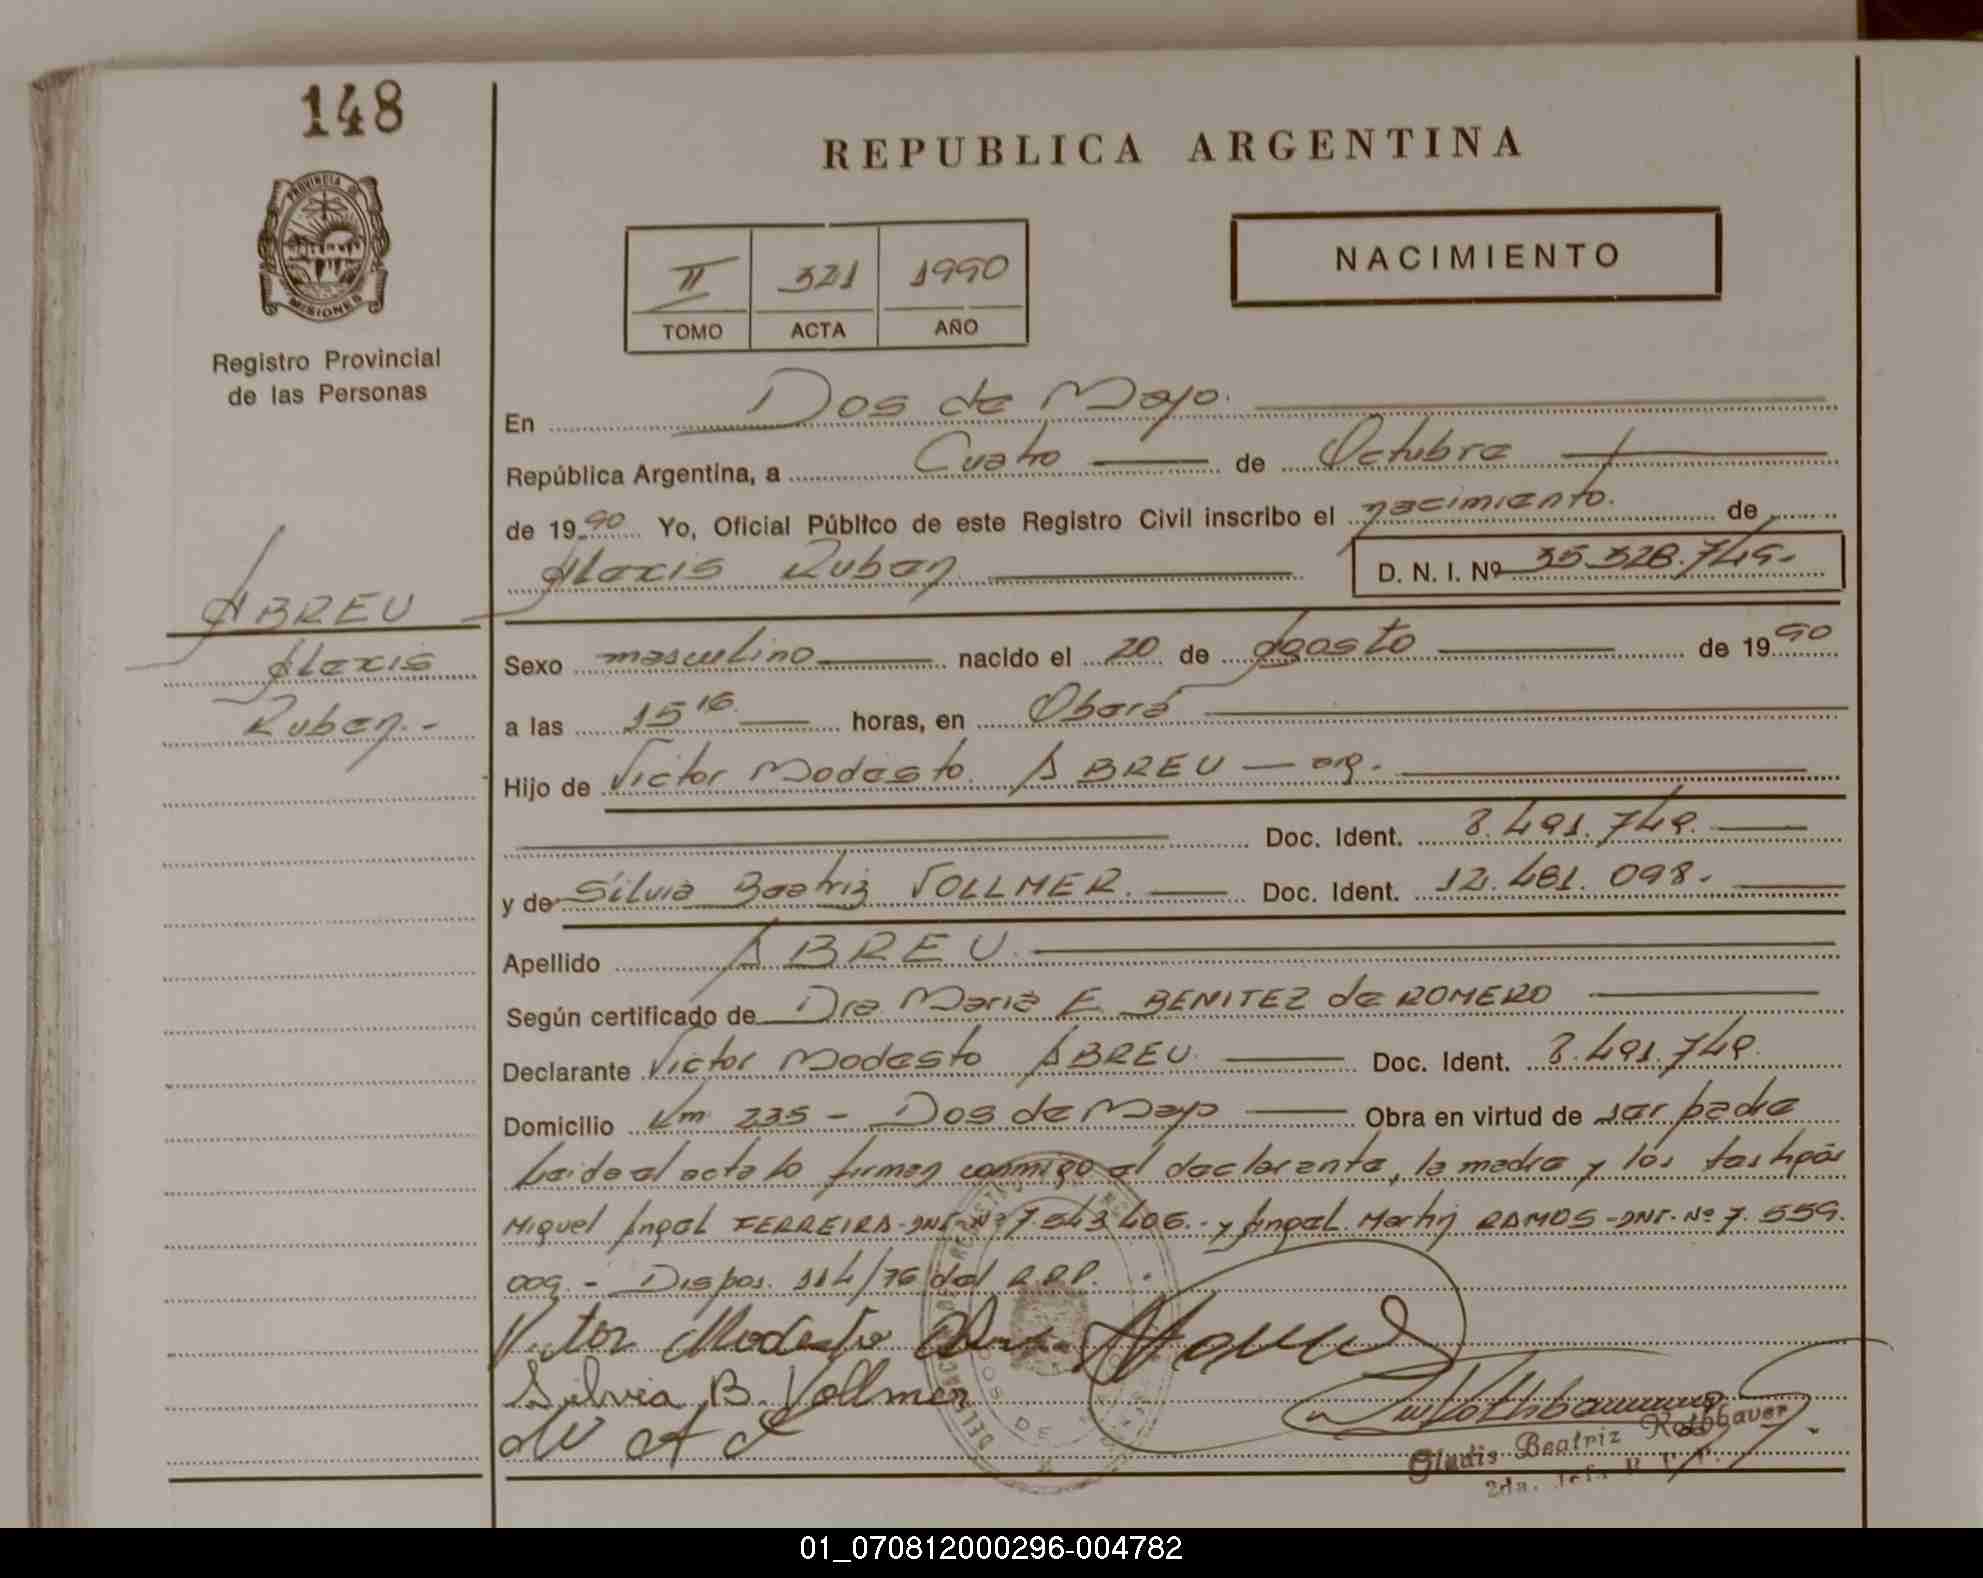 148
REPUBLICA ARGENTINA
PROVINCIA DE
MISIONES
Registro Provincial
de las Personas
II 321 1990
TOMO ACTA AÑO
NACIMIENTO
En Dos de Mayo.
República Argentina, a Cuatro de Octubre
de 1990 Yo, Oficial Público de este Registro Civil inscribo el nacimiento. de
Alexis Ruben D. N. I. Nº 35.328.749.-
ABREU
Alexis
Ruben.-
Sexo masculino nacido el 20 de Agosto de 1990
a las 15 16 horas, en Oberá
Hijo de Victor Modesto ABREU - arg.
Doc. Ident. 8.491.749.
y de Silvia Beatriz VOLLMER. Doc. Ident. 12.481.098.
Apellido ABREU.
Según certificado de Dra. Maria E. BENITEZ de ROMERO
Declarante Victor Modesto ABREU. Doc. Ident. 8.491.749.
Domicilio Km 235 - Dos de Mayo Obra en virtud de ser padre
Leida el acta lo firman conmigo el declarante, la madre y los testigos
Miguel Angel FERREIRA-DNI-Nº 7.543.406.- y Angel Martin RAMOS-DNI-Nº 7.559.
009.- Dispos. 114/76 del R.P.P.
Victor Modesto Abreu
Silvia B. Vollmer
M A F
Gladis Beatriz Rothbauer
2da. Jef. R. P. P.
01_070812000296-004782